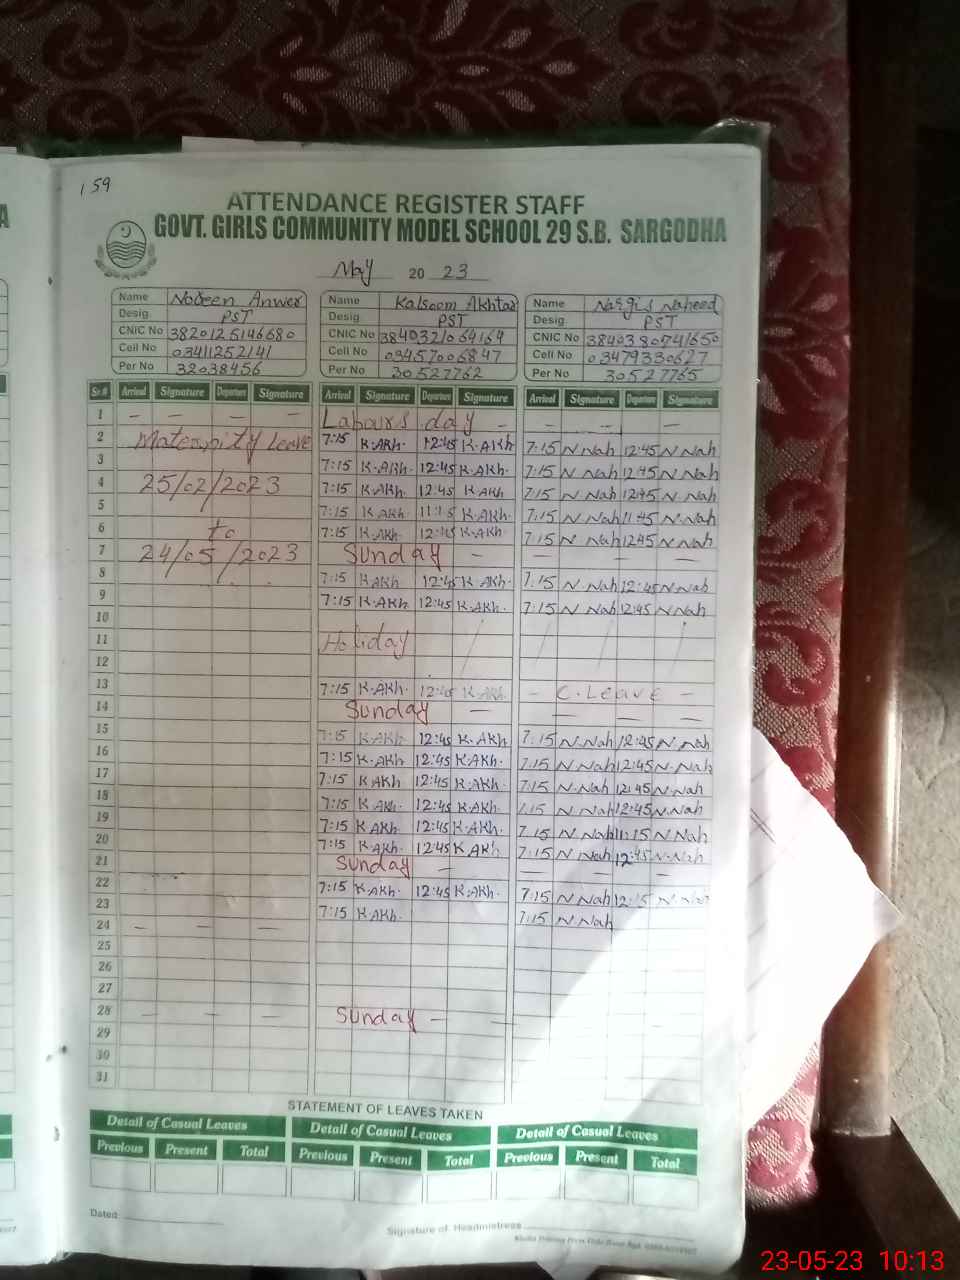 159
ATTENDANCE REGISTER STAFF
GOVT. GIRLS COMMUNITY MODEL SCHOOL 29 S.B. SARGODHA
May 2023
Name Noreen Anwer Name Kalsoom Akhtar Name Nargis Naheed
Desig PST Desig. PST Desig. PST
CNIC No 3820125146680 CNIC No 3840321064164 CNIC No 3840380741650
Cell No 03411252141 Cell No 03457006847 Cell No 03479330627
Per No 32038456 Per No 30527762 Per No 30527765
Sr.# Arrival Signature Departure Signature Arrival Signature Departure Signature Arrival Signature Departure Signature
1 - - - - Labours day - - - - -
2 Maternity Leave 7:15 K.AKh. 12:45 K.AKh 7:15 N Nah 12:45 N Nah
3 7:15 K.AKh. 12:45 K.AKh. 7:15 N Nah 12:45 N Nah
4 25/02/2023 7:15 K.AKh. 12:45 K.AKh 7:15 N Nah 12:45 N Nah
5 7:15 K.AKh. K.AKh. 7:15 N Nah 11:45 N.Nah
6 to 7:15 K.AKh. 12:45 K.AKh. 7:15 N Nah 12:45 N Nah
7 24/05/2023 Sunday - - - -
8 7:15 K.AKh 12:45 K.AKh. 7:15 N Nah 12:45 N Nah
9 7:15 K.AKh. 12:45 K.AKh. 7:15 N Nah 12:45 N Nah
10
11 Holiday
12
13 7:15 K.AKh. 12:45 K.AKh. - C.Leave -
14 Sunday - - - -
15 7:15 K.AKh 12:45 K.AKh 7:15 N.Nah 12:45 N.Nah
16 7:15 K.AKh. 12:45 K.AKh. 7:15 N.Nah 12:45 N.Nah
17 7:15 K.AKh 12:45 K.AKh. 7:15 N.Nah 12:45 N.Nah
18 7:15 K.AKh. 12:45 K.AKh. 7:15 N.Nah 12:45 N.Nah
19 7:15 K.AKh. 12:45 K.AKh. 7:15 N.Nah 11:15 N Nah
20 7:15 K.AKh. 12:45 K.AKh 7:15 N Nah 12:45 N.Nah
21 Sunday - - - - -
22 7:15 K.AKh. 12:45 K.AKh. 7:15 N.Nah N.Nah
23 7:15 K.AKh. 7:15 N Nah
24 - - -
25
26
27
28 - - - Sunday - -
29
30
31
STATEMENT OF LEAVES TAKEN
Detail of Casual Leaves Detail of Casual Leaves Detail of Casual Leaves
Previous Present Total Previous Present Total Previous Present Total
Dated:
Signature of Headmistress
23-05-23 10:13